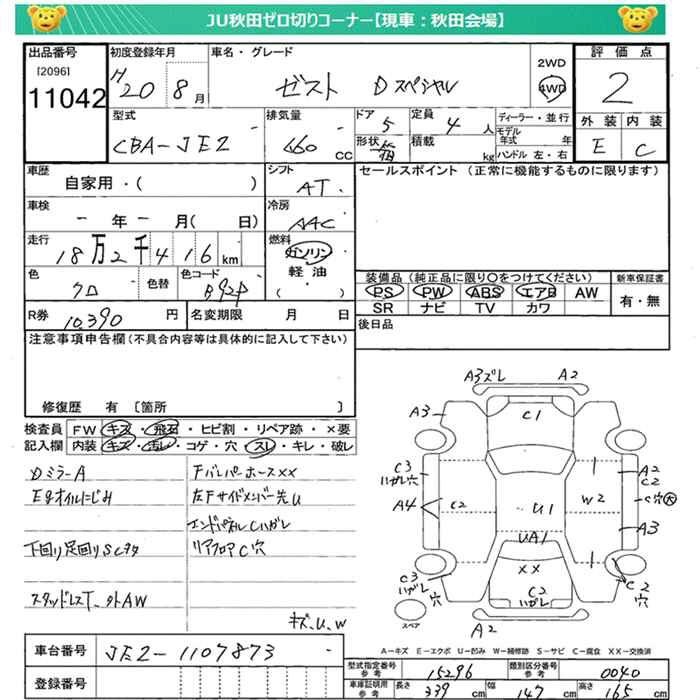 JU秋田ゼロ切りコーナー【現車：秋田会場】
出品番号
[2096]
11042
初度登録年月
H20 8月
車名・グレード
ゼスト Dスペシャル
2WD
4WD
評価点
2
外装 内装
E C
型式
CBA-JE2
排気量
660 cc
ドア
5
定員
4 人
形状
箱
積載
kg
ディーラー・並行
モデル年式 年
ハンドル 左・右
車歴
自家用・( )
シフト
AT
セールスポイント (正常に機能するものに限ります)
車検
ー年ー月( 日)
冷房
AAC
走行
18万2千416km
燃料
ガソリン
軽油
( )
色
クロ
色替
色コード
B92P
装備品 (純正品に限り○をつけてください)
PS PW ABS エアB AW
SR ナビ TV カワ
新車保証書
有・無
R券
10,390 円
名変期限 月 日
後日品
注意事項申告欄 (不具合内容等は具体的に記入して下さい)
修復歴 有 〔箇所 〕
検査員記入欄
FW キズ・飛石・ヒビ割・リペア跡・×要
内装 キズ・汚レ・コゲ・穴・スレ・キレ・破レ
DミラーA
FバンパーホースXX
Egオイルにじみ
左Fサイドメンバー先U
エンドパネルCハガレ
下回り足回りSCヌタ
リアフロアC穴
スタッドレスT、外AW
キズ、U、W
A3ズレ A2
A3
C1
C3
ハガレ穴
A4
C2
U1
UA1
W2
A2
C2
C穴大
A3
XX
C2
ハガレ
C3
ハガレ穴
C2
穴
A2
スペア
A-キズ E-エクボ U-凹み W-補修跡 S-サビ C-腐食 XX-交換済
車台番号
JE2-1107873
登録番号
型式指定番号
参考
15296
類別区分番号
参考
0040
車庫証明用
参考
長さ 339 cm
幅 147 cm
高さ 165 cm